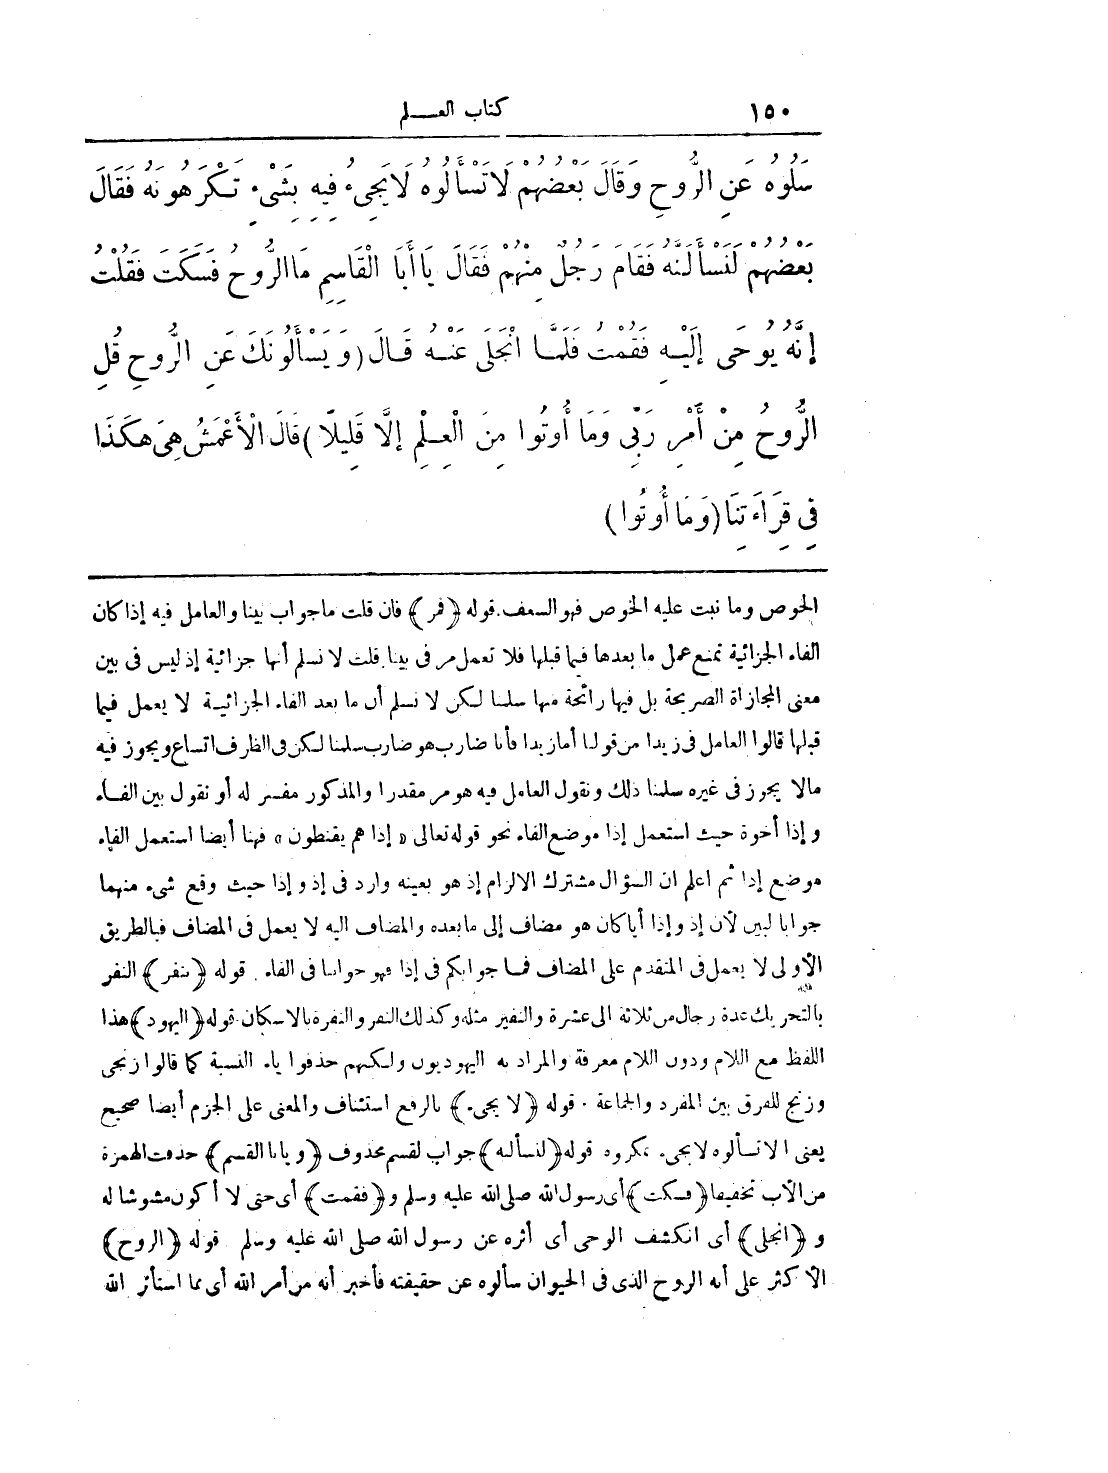 ١٥٠ كتاب العـــلم
سَلُوهُ عَنِ الرُّوحِ وَقَالَ بَعْضُهُمْ لَا تَسْأَلُوهُ لَا يَجِيءُ فِيهِ بِشَيْءٍ تَكْرَهُونَهُ فَقَالَ
بَعْضُهُمْ لَنَسْأَلَنَّهُ فَقَامَ رَجُلٌ مِنْهُمْ فَقَالَ يَا أَبَا الْقَاسِمِ مَا الرُّوحُ فَسَكَتَ فَقُلْتُ
إِنَّهُ يُوحَى إِلَيْهِ فَقُمْتُ فَلَمَّا انْجَلَى عَنْهُ قَالَ (وَيَسْأَلُونَكَ عَنِ الرُّوحِ قُلِ
الرُّوحُ مِنْ أَمْرِ رَبِّى وَمَا أُوتُوا مِنَ الْعِلْمِ إِلَّا قَلِيلًا) قَالَ الْأَعْمَشُ هِىَ هكَذَا
فِى قِرَاءَتِنَا (وَمَا أُوتُوا)
الخوص وما نبت عليه الخوص فهو السعف. قوله ﴿فمر﴾ فان قلت ماجواب بينا والعامل فيه إذا كان
الفاء الجزائية تمنع عمل ما بعدها فيما قبلها فلا تعمل مر فى بينا. قلت لا نسلم أنها جزائية إذ ليس فى بين
معنى المجازاة الصريحة بل فيها رائحة منها سلمنا لكن لا نسلم أن ما بعد الفاء الجزائية لا يعمل فيما
قبلها قالوا العامل فى زيدا من قولنا أما زيدا فأنا ضارب هو ضارب سلمنا لكن فى الظرف اتساع ويجوز فيه
مالا يجوز فى غيره سلمنا ذلك ونقول العامل فيه هو مر مقدرا والمذكور مفسر له أو نقول بين الفـاء
وإذا أخوة حيث استعمل إذا موضع الفاء نحو قوله تعالى «إذا هم يقنطون» فهنا أيضا استعمل الفاء
موضع إذا ثم اعلم ان السؤال مشترك الالزام إذ هو بعينه وارد فى إذ وإذا حيث وقع شىء منهما
جوابا لبين لأن إذ وإذا أياكان هو مضاف إلى مابعده والمضاف اليه لا يعمل فى المضاف فبالطريق
الأولى لا يعمل فى المتقدم على المضاف فما جوابكم فى إذا فهو جوابنا فى الفاء. قوله ﴿بنفر﴾ النفر
بالتحريك عدة رجال من ثلاثة الى عشرة والنفير مثله وكذلك النفر والنفرة بالاسكان. قوله ﴿اليهود﴾ هذا
اللفظ مع اللام ودون اللام معرفة والمراد به اليهوديون ولكنهم حذفوا ياء النسبة كما قالوا زنجى
وزنج للفرق بين المفرد والجماعة. قوله ﴿لا يجىء﴾ بالرفع استئناف والمعنى على الجزم أيضا صحيح
يعنى ألا تسألوه لا يجىء بمكروه قوله ﴿لنسألنه﴾ جواب لقسم محذوف ﴿ويابا القسم﴾ حذفت الهمزة
من الأب تخفيفا ﴿فسكت﴾ أى رسول الله صلى الله عليه وسلم و ﴿فقمت﴾ أى حتى لا أكون مشوشا له
و ﴿انجلى﴾ أى انكشف الوحى أى أثره عن رسول الله صلى الله عليه وسلم قوله ﴿الروح﴾
الأكثر على أنه الروح الذى فى الحيوان سألوه عن حقيقته فأخبر أنه من أمر الله أى مما استأثر الله